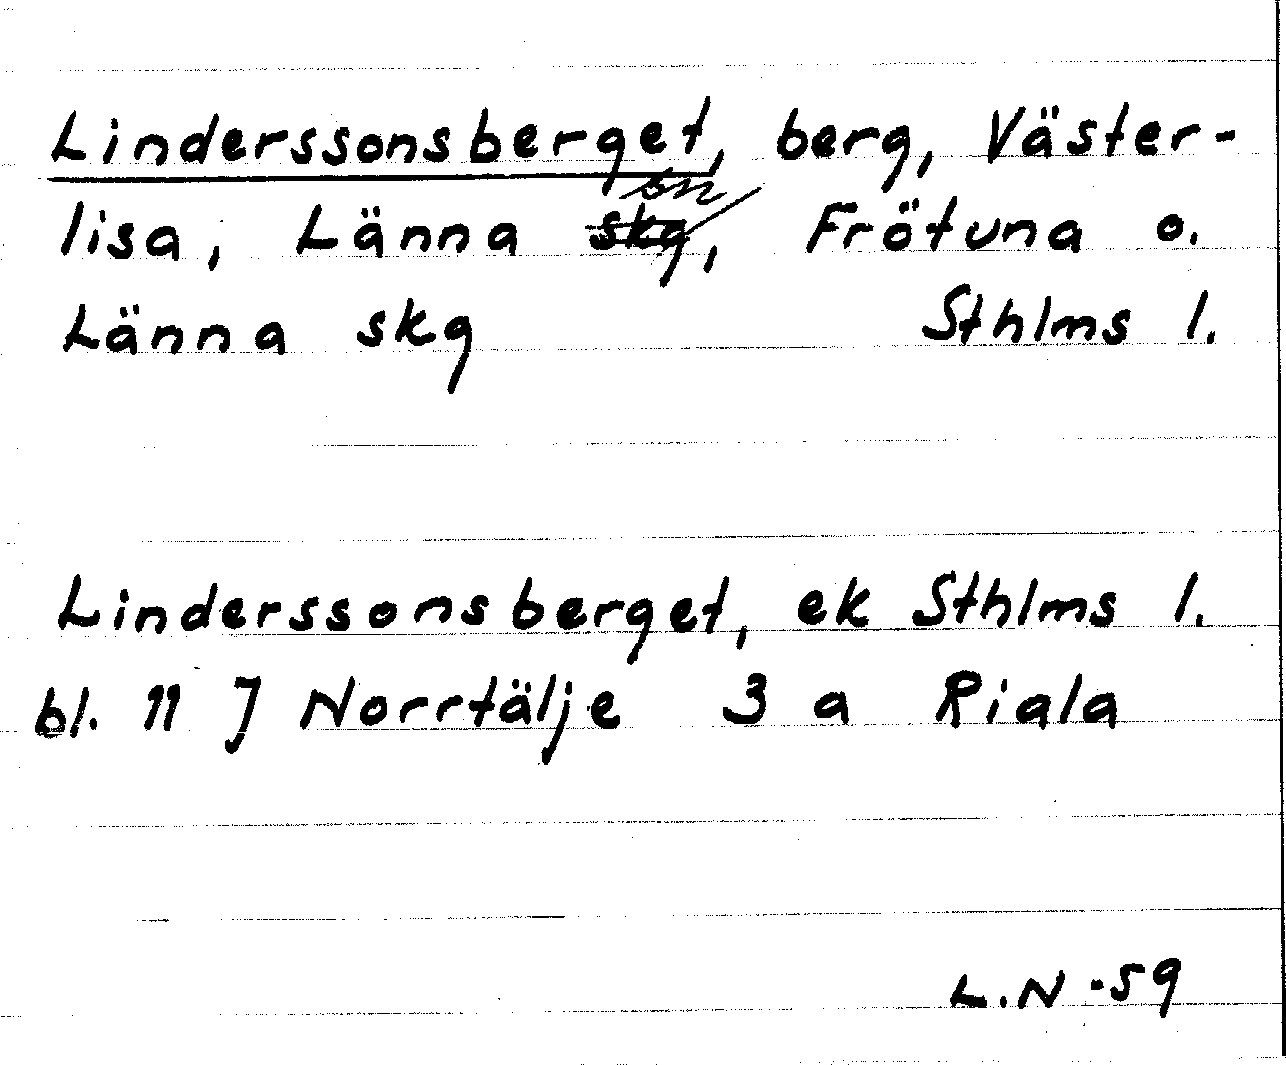 Linderssonsberget, berg, Väster-
lisa, Länna sn, Frötuna o.
Länna skg Sthlms l.
Linderssonsberget, ek Sthlms l.
bl. 11 J Norrtälje 3 a Riala
L.N -59